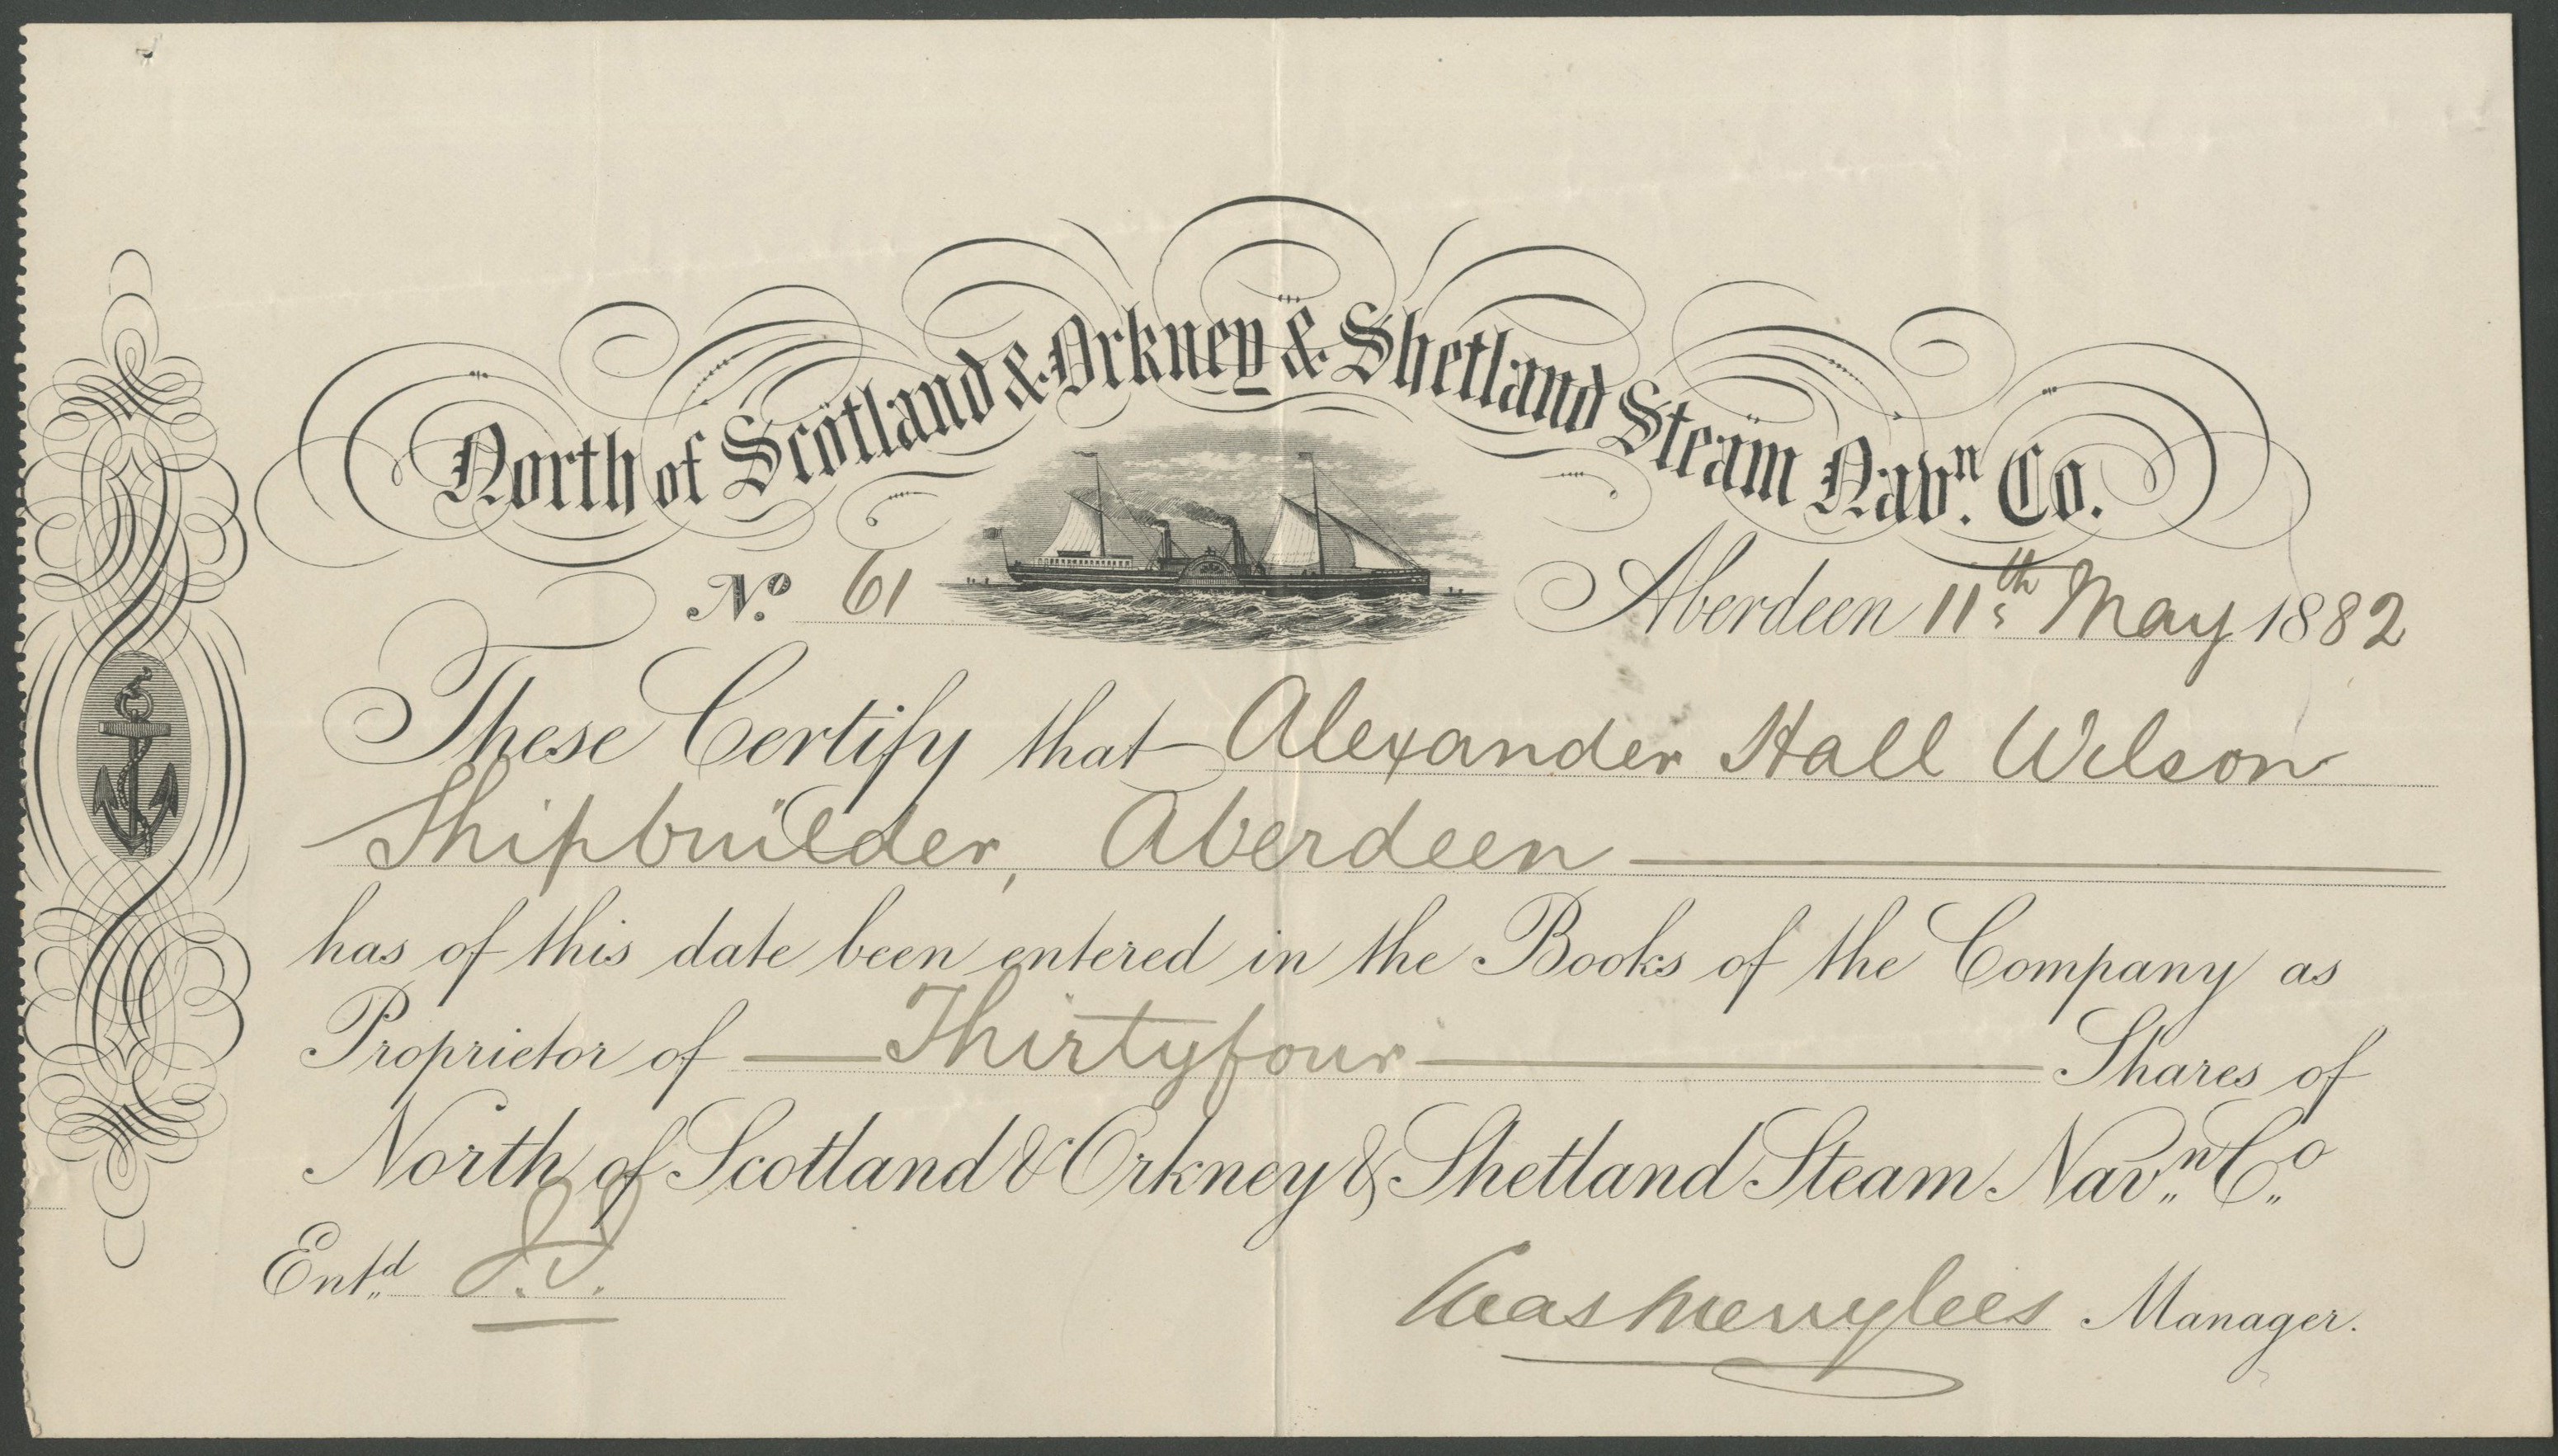 North of Scotland & Orkney & Shetland Steam Navn. Co.
No. 61
Aberdeen 11th May 1882
These Certify that Alexander Hall Wilson
Shipbuilder, Aberdeen
has of this date been entered in the Books of the Company as
Proprietor of Thirtyfour Shares of
North of Scotland & Orkney & Shetland Steam Navn. Co.
Entd.
Chas Merrylees Manager.